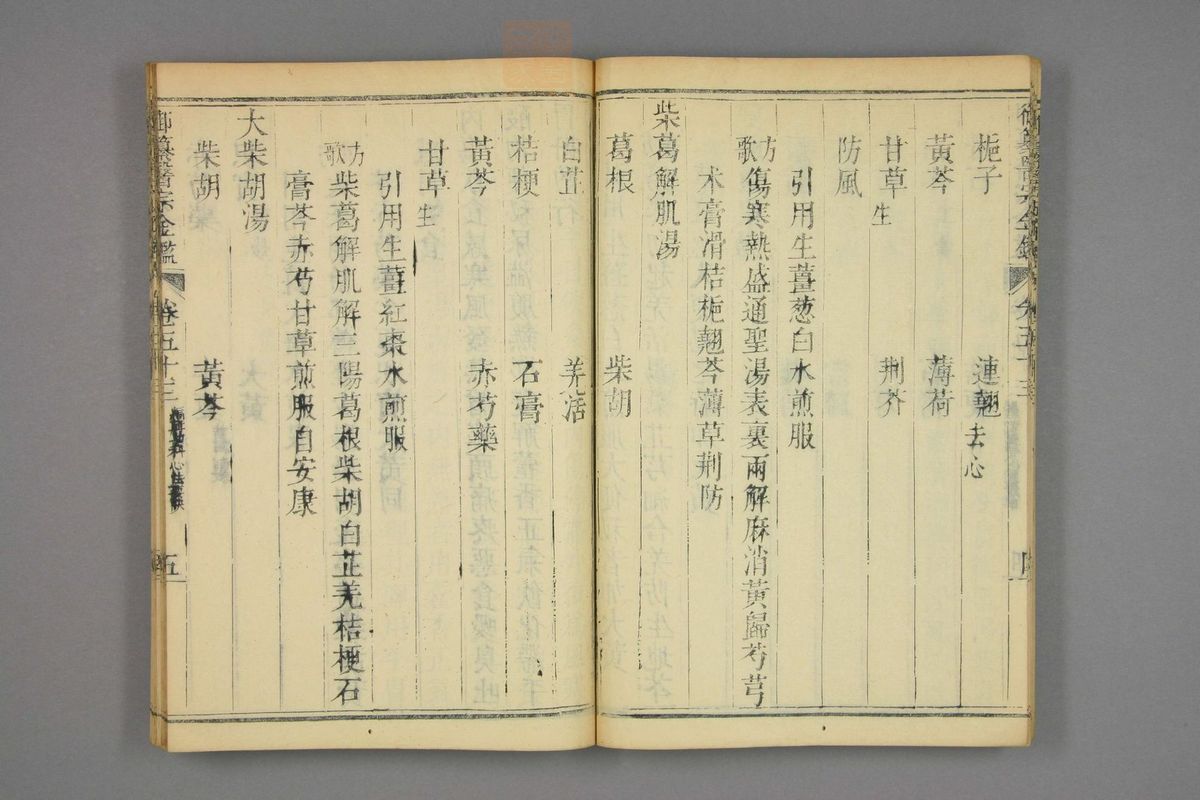 御纂醫宗金鑑 卷五十三
梔子 連翹去心
黃芩 薄荷
甘草生 荆芥
防風
引用生薑葱白水煎服
方歌 傷寒熱盛通聖湯表裏兩解麻消黃歸芍芎
朮膏滑桔梔翹芩薄草荆防
柴葛解肌湯
葛根 柴胡
白芷 羌活
桔梗 石膏
黃芩 赤芍藥
甘草生
引用生薑紅棗水煎服
方歌 柴葛解肌解三陽葛根柴胡白芷羌桔梗石
膏芩赤芍甘草煎服自安康
大柴胡湯
柴胡 黃芩
御纂醫宗金鑑 卷五十三 五